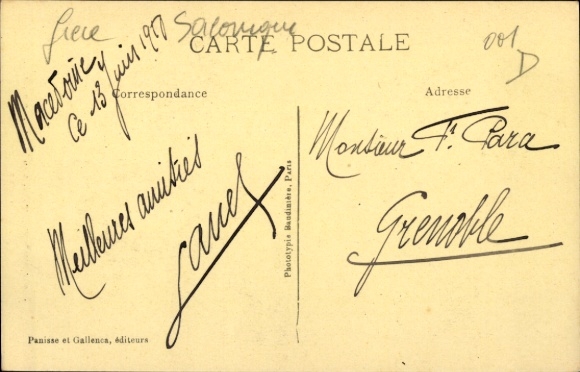 Grece Salonique
001
D
CARTE POSTALE
Correspondance
Adresse
Macedoine
Ce 13 Juin
Meilleures amitiés
Monsieur Fs. Para
Grenoble
Phototypie Baudinière, Paris
Panisse et Gallenca, éditeurs